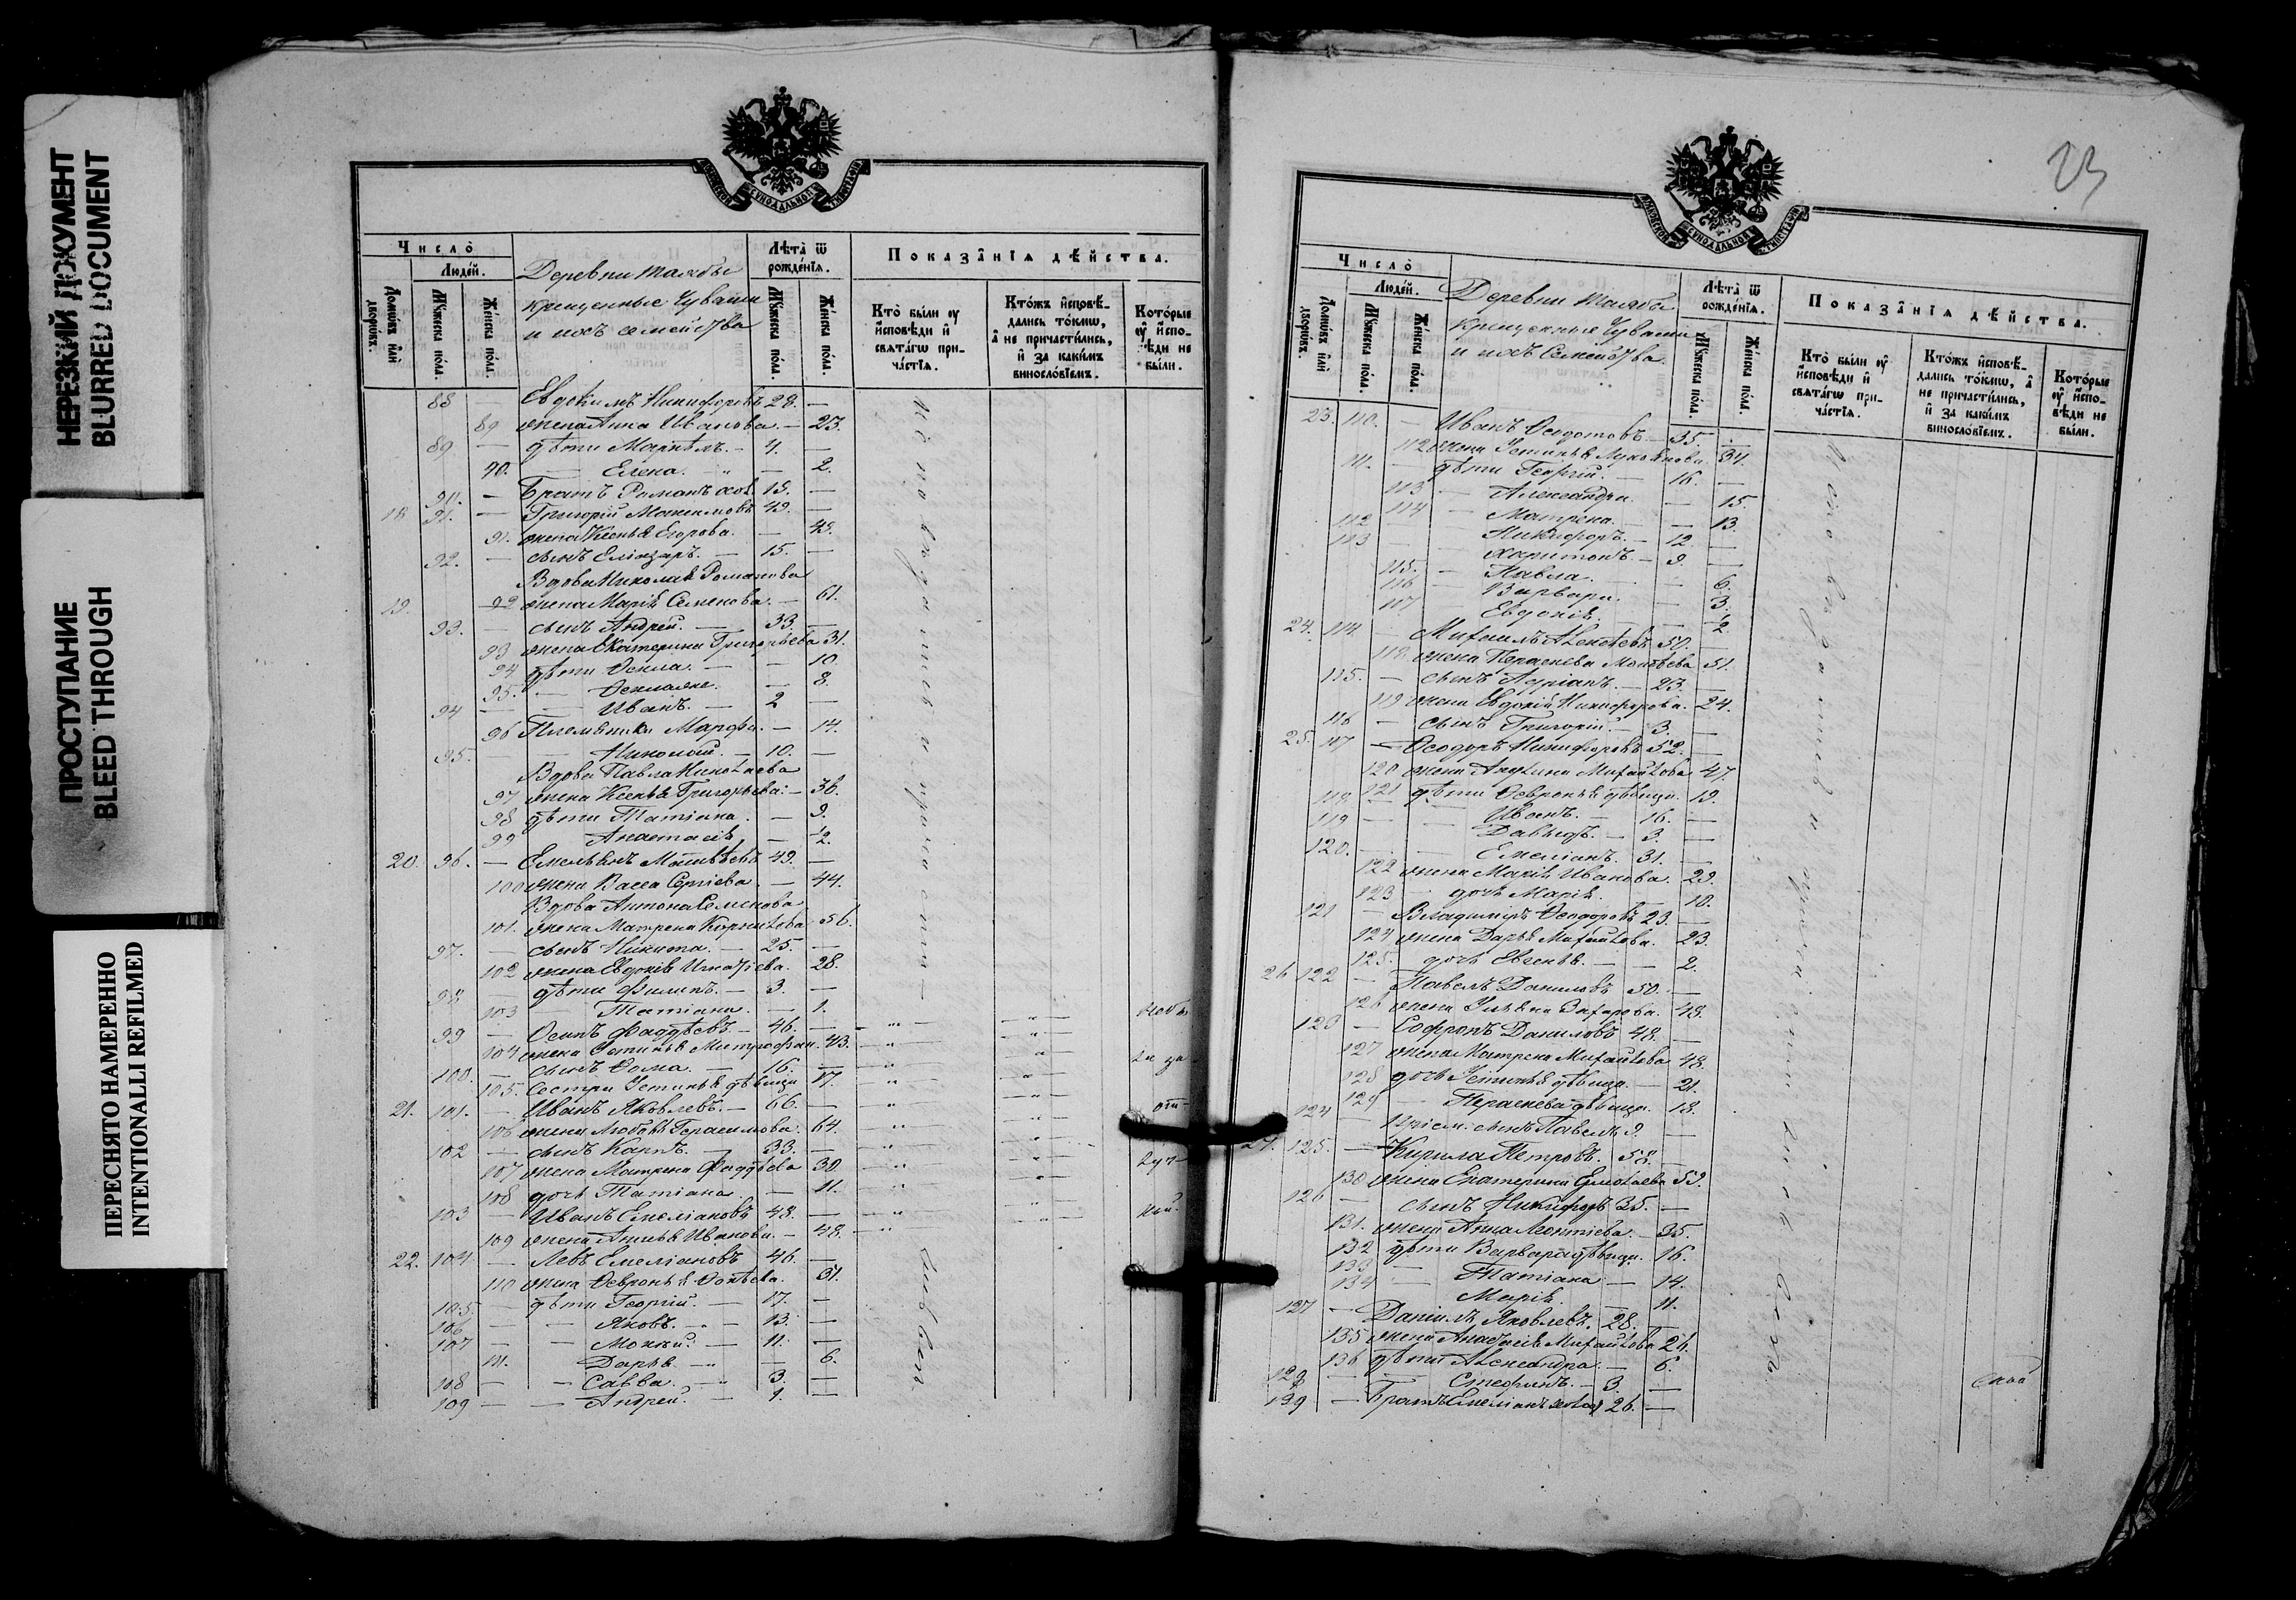 НЕРЕЗКИЙ ДОКУМЕНТ
BLURRED DOCUMENT
ПРОСТУПАНИЕ
BLEED THROUGH
ПЕРЕСНЯТО НАМЕРЕННО
INTENTIONALLI REFILMED
МОСКОВСКОЙ СѴНОДАЛЬНОЙ ТИПОГРАФІИ
Число̀
Люде́й.
Лѣта̀ ѿ рожде́нїѧ.
Показа̑нїѧ дѣ́йства.
Домѡ́въ и҆лѝ дворѡ́въ.
Мꙋ́жеска по́ла.
Же́нска по́ла.
Деревни Таябы
крещенные Чуваши
и ихъ семейства
Мꙋ́жеска по́ла.
Же́нска по́ла.
Кто̀ бы́ли ᲂу҆ и҆сповѣ́ди и҆ свѧта́гѡ причáстїѧ.
Кто́жъ и҆сповѣ́дались то́кмѡ, а҆ не причасти́лись, и҆ за каки́мъ винослóвїемъ.
Кото́рые ᲂу҆ и҆сповѣ́ди не бы́ли.
88 — Евдокимъ Никифоровъ 28. —
89 жена Анна Иванова. — 23.
89 — дѣти Маркелъ. — 4. —
90. — Елена. — 2.
90. — Братъ Романъ хол. 18. —
18 91. — Григорій Максимовъ 49. —
91. жена Ксенья Егорова. — 43.
92. — сынъ Еліазаръ. — 15. —
Вдова Николая Романова
19. 92 жена Марія Семенова. — 61.
93. — сынъ Андрей. — 33. —
93 жена Екатерина Григорьева 31.
94 дѣти Фекла. — — 10.
95. — — 8.
94 — — Иванъ. — 2 —
96 Племяники Марфа. — 14.
95. — Николай. — 10. —
Вдова Павла Николаева
97 жена Ксенья Григорьева. — 36.
98 дѣти Татіана. — 9.
99 Анастасія — 2.
20. 96. — Емельянъ Матвѣевъ 49. —
100 жена Васса Сергіева — 44.
Вдова Антона Семенова
101. жена Матрена Корнилова 56.
97. — сынъ Никита. — 25. —
102 жена Евдокія Игнатіева. 28.
98 — дѣти Филипъ. — 3. —
103 — Татіана. — 1.
99 — Осипъ Фаддѣевъ. — 46. —
104 жена Устинья Митрофан. 43.
100. — сынъ Ѳома. — 16. —
105. Сестра Устинья дѣвица 17.
21. 101. — Иванъ Яковлевъ. — 66. —
106 жена Любовь Герасимова. 64.
102 — сынъ Карпъ. — 33. —
107 жена Матрена Фаддѣева 30.
108 дочь Татіана. — 11.
103 — Иванъ Емеліановъ 48. —
109 жена Анисья Иванова. — 48.
22. 104 — Левъ Емеліановъ 46. —
110 жена Февронья 51.
105. — дѣти Георгій. — 17. —
106 — — Яковъ. — 13. —
107 — — Мокий. — 11. —
111. Дарья — 6.
108 — — Савва. — 3. —
109 — — Андрей. — 1. —
исповѣдались и причастились
23
МОСКОВСКОЙ СѴНОДАЛЬНОЙ ТИПОГРАФІИ
Число̀
Люде́й.
Лѣта̀ ѿ рожде́нїѧ.
Показа̑нїѧ дѣ́йства.
Домѡ́въ и҆лѝ дворѡ́въ.
Мꙋ́жеска по́ла.
Же́нска по́ла.
Деревни Таябы
крещенные Чуваши
и ихъ Семейства.
Мꙋ́жеска по́ла.
Же́нска по́ла.
Кто̀ бы́ли ᲂу҆ и҆сповѣ́ди и҆ свѧта́гѡ причáстїѧ.
Кто́жъ и҆сповѣ́дались то́кмѡ, а҆ не причасти́лись, и҆ за каки́мъ винослóвїемъ.
Кото́рые ᲂу҆ и҆сповѣ́ди не бы́ли.
23. 110. — Иванъ Ѳедотовъ — 35. —
112 жена Устинья Лукьянова. 34.
111. — дѣти Георгій. — 16. —
113 — Александра. — 15.
114 — Матрена. — 13.
112 — Никифоръ. — 12. —
113 — Харитонъ. — 9. —
115. — Павла. — 6.
116 — Варвара. — 3.
117 — Евдокія. — 2.
24. 114 — Михаилъ Алексѣевъ 50. —
118. жена Параскева 51.
115. — сынъ Адріанъ. — 23. —
119 жена Евдокія Никифорова. 24.
116 — сынъ Григорій. — 3. —
25. 117 — Ѳеодоръ Никифоровъ 52. —
120 жена Акулина Михайлова 47.
121 дѣти Февронья дѣвица. 19.
118 — Иванъ. — 16. —
119 — Давыдъ. — 3. —
120. — Емеліанъ. 31. —
122 жена Марія Иванова. 29.
123 — дочь Марія. 10.
121 — Владиміръ Ѳеодоровъ 23. —
124 жена Дарья Михайлова. 23.
125. дочь Евгенья. — 2.
26 122 — Павелъ Даниловъ 50. —
126 жена Ульяна Захарова. 48.
123 — Софронъ Даниловъ 48. —
127 жена Матрена Михайлова 48.
128 дочь Устинья дѣвица. — 21.
129 — Параскева дѣвица. 18.
124 — Пріем. сынъ Павелъ 9. —
27. 125. — Кирила Петровъ. 58. —
130 жена Екатерина Ермолаева 59.
126 — сынъ Никифоръ 35. —
131. жена Анна Леонтіева. — 35.
132 дѣти Варвара дѣвица. 16.
133 — Татіана — 14.
134 — Марія. 11.
127 — Даніилъ Яковлевъ. 28. —
135 жена Анастасія Михайлова 26.
136 дѣти Александра. — 6.
128 — Стефанъ. — 3. —
129 — Братъ Емеліанъ холос 26. —